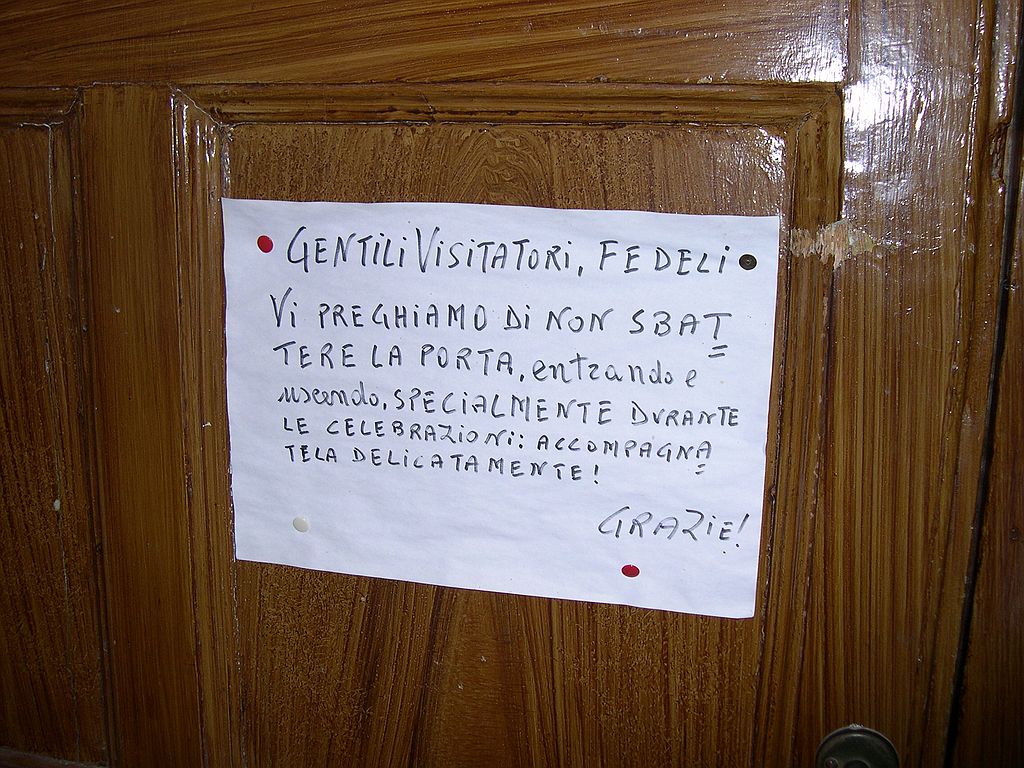 GENTILI VISITATORI, FEDELI
Vi PREGHIAMO Di NON SBAT
TERE LA PORTA, entrando e
uscendo, SPECIALMENTE DURANTE
LE CELEBRAZIONI: ACCOMPAGNA
TELA DELICATAMENTE!
GRAZIE!